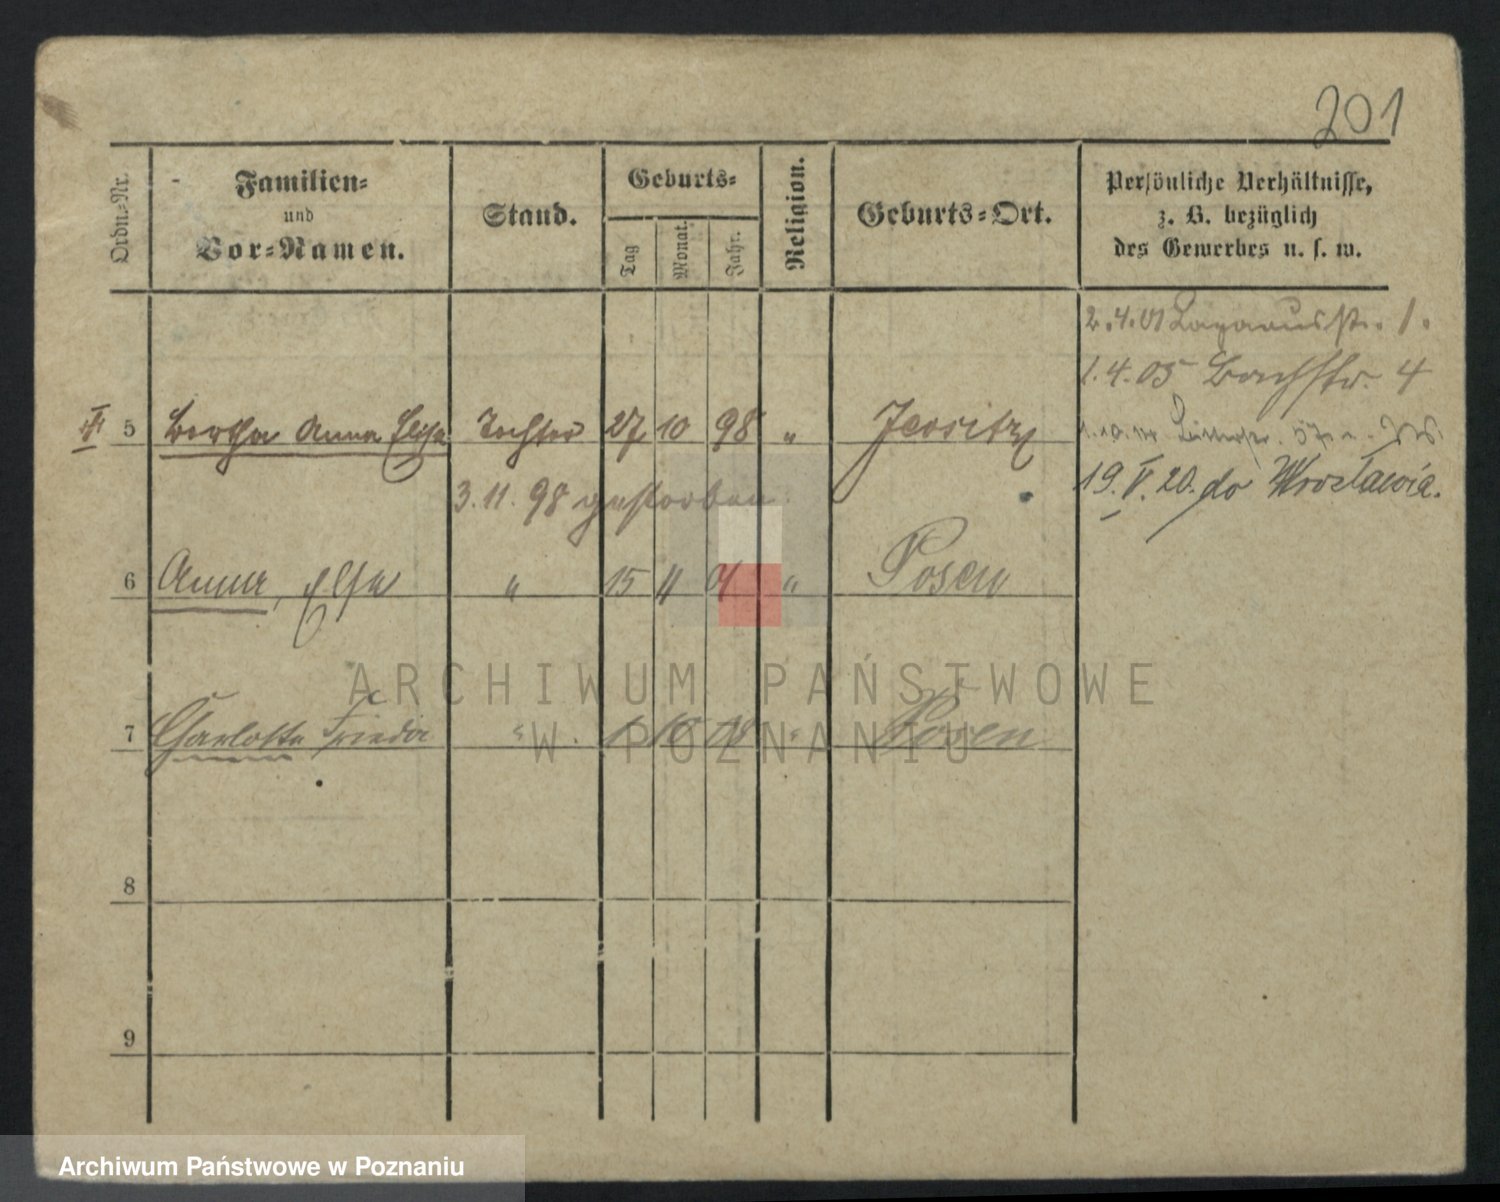 201
Ordn.-Nr.
Familien-
und
Vor-Namen.
Stand.
Geburts-
Tag
Monat.
Jahr.
Religion.
Geburts-Ort.
Persönliche Verhältnisse,
z. B. bezüglich
des Gewerbes u. s. w.
2.4.01 Lazarusstr. 1.
1.4.05 Bachstr. 4
5 Bertha Anna Elsa Tochter 27 10 98 " Jersitz
19.V.20. do Wrocławia.
3.11.98 gestorben
6 Anna, Elsa " 15 11 " Posen
7 Charlotte Frieda " 10 08 " Posen
8
9
ARCHIWUM PAŃSTWOWE
W POZNANIU
Archiwum Państwowe w Poznaniu